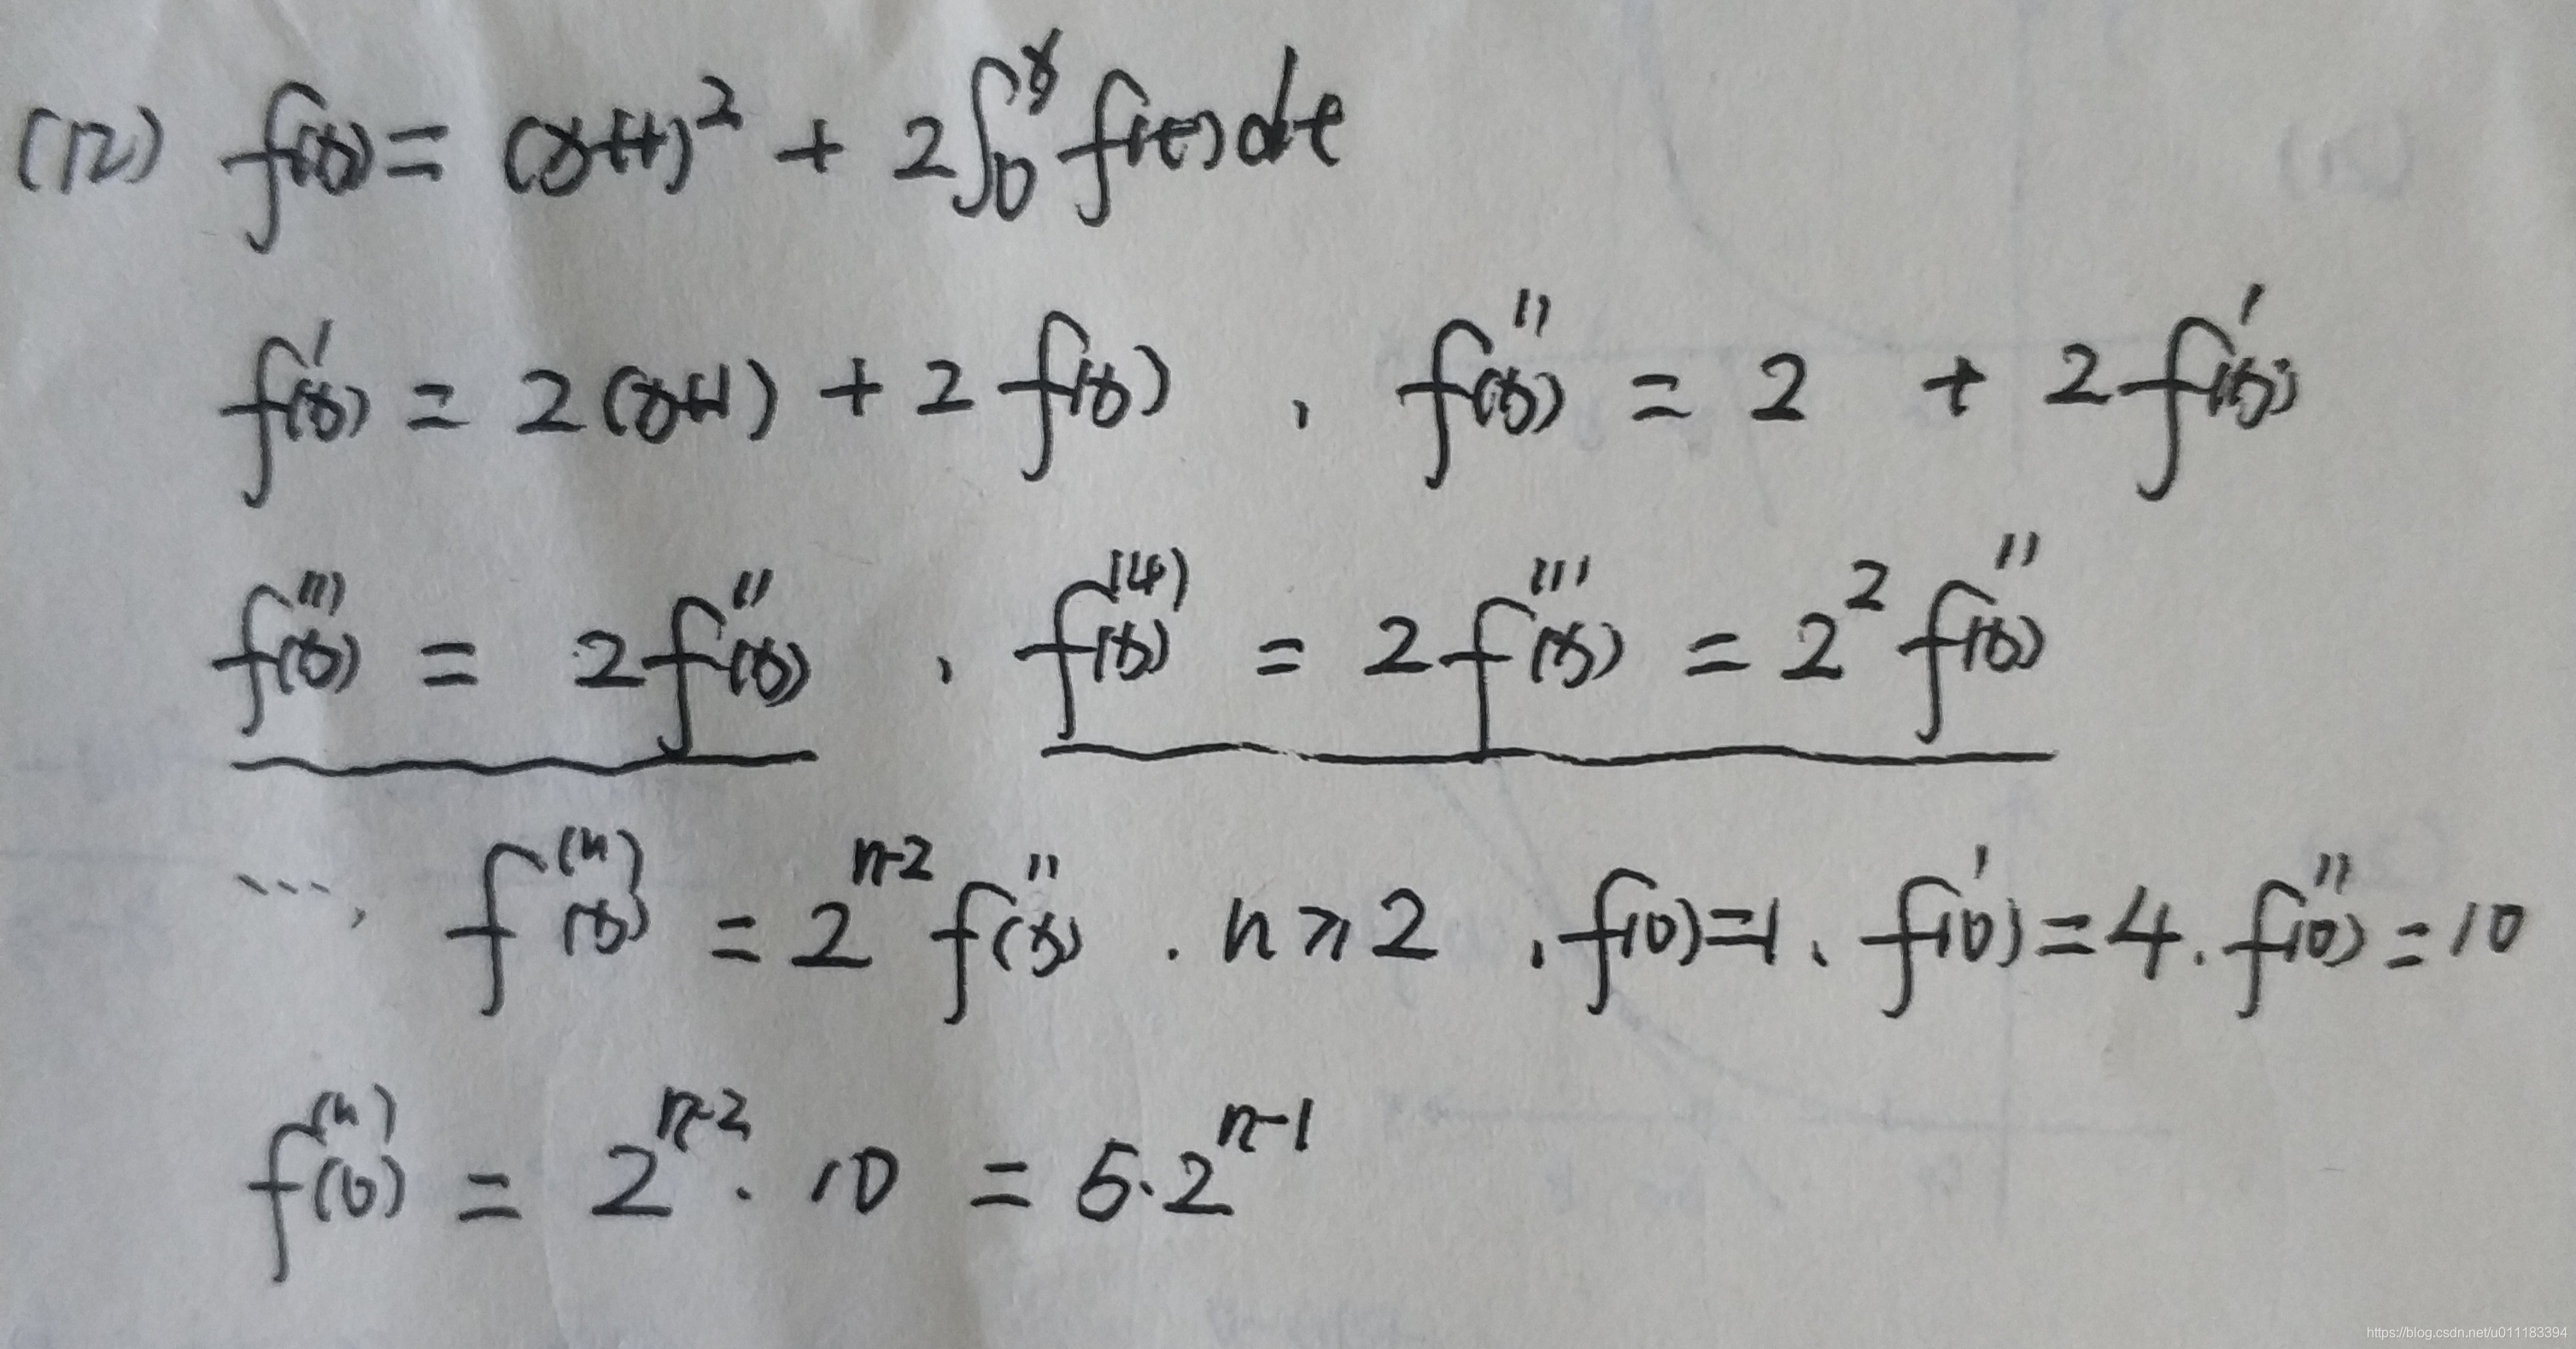 (12) f(x) = (x+1)² + 2∫₀ˣ f(t)dt
f'(x) = 2(x+1) + 2f(x) , f''(x) = 2 + 2f'(x)
f'''(x) = 2f''(x) , f⁽⁴⁾(x) = 2f'''(x) = 2² f''(x)
…, f⁽ⁿ⁾(x) = 2ⁿ⁻² f''(x) . n ≥ 2 , f(0)=1 、 f'(0)=4 . f''(0)=10
f⁽ⁿ⁾(0) = 2ⁿ⁻² · 10 = 5·2ⁿ⁻¹
https://blog.csdn.net/u011183394